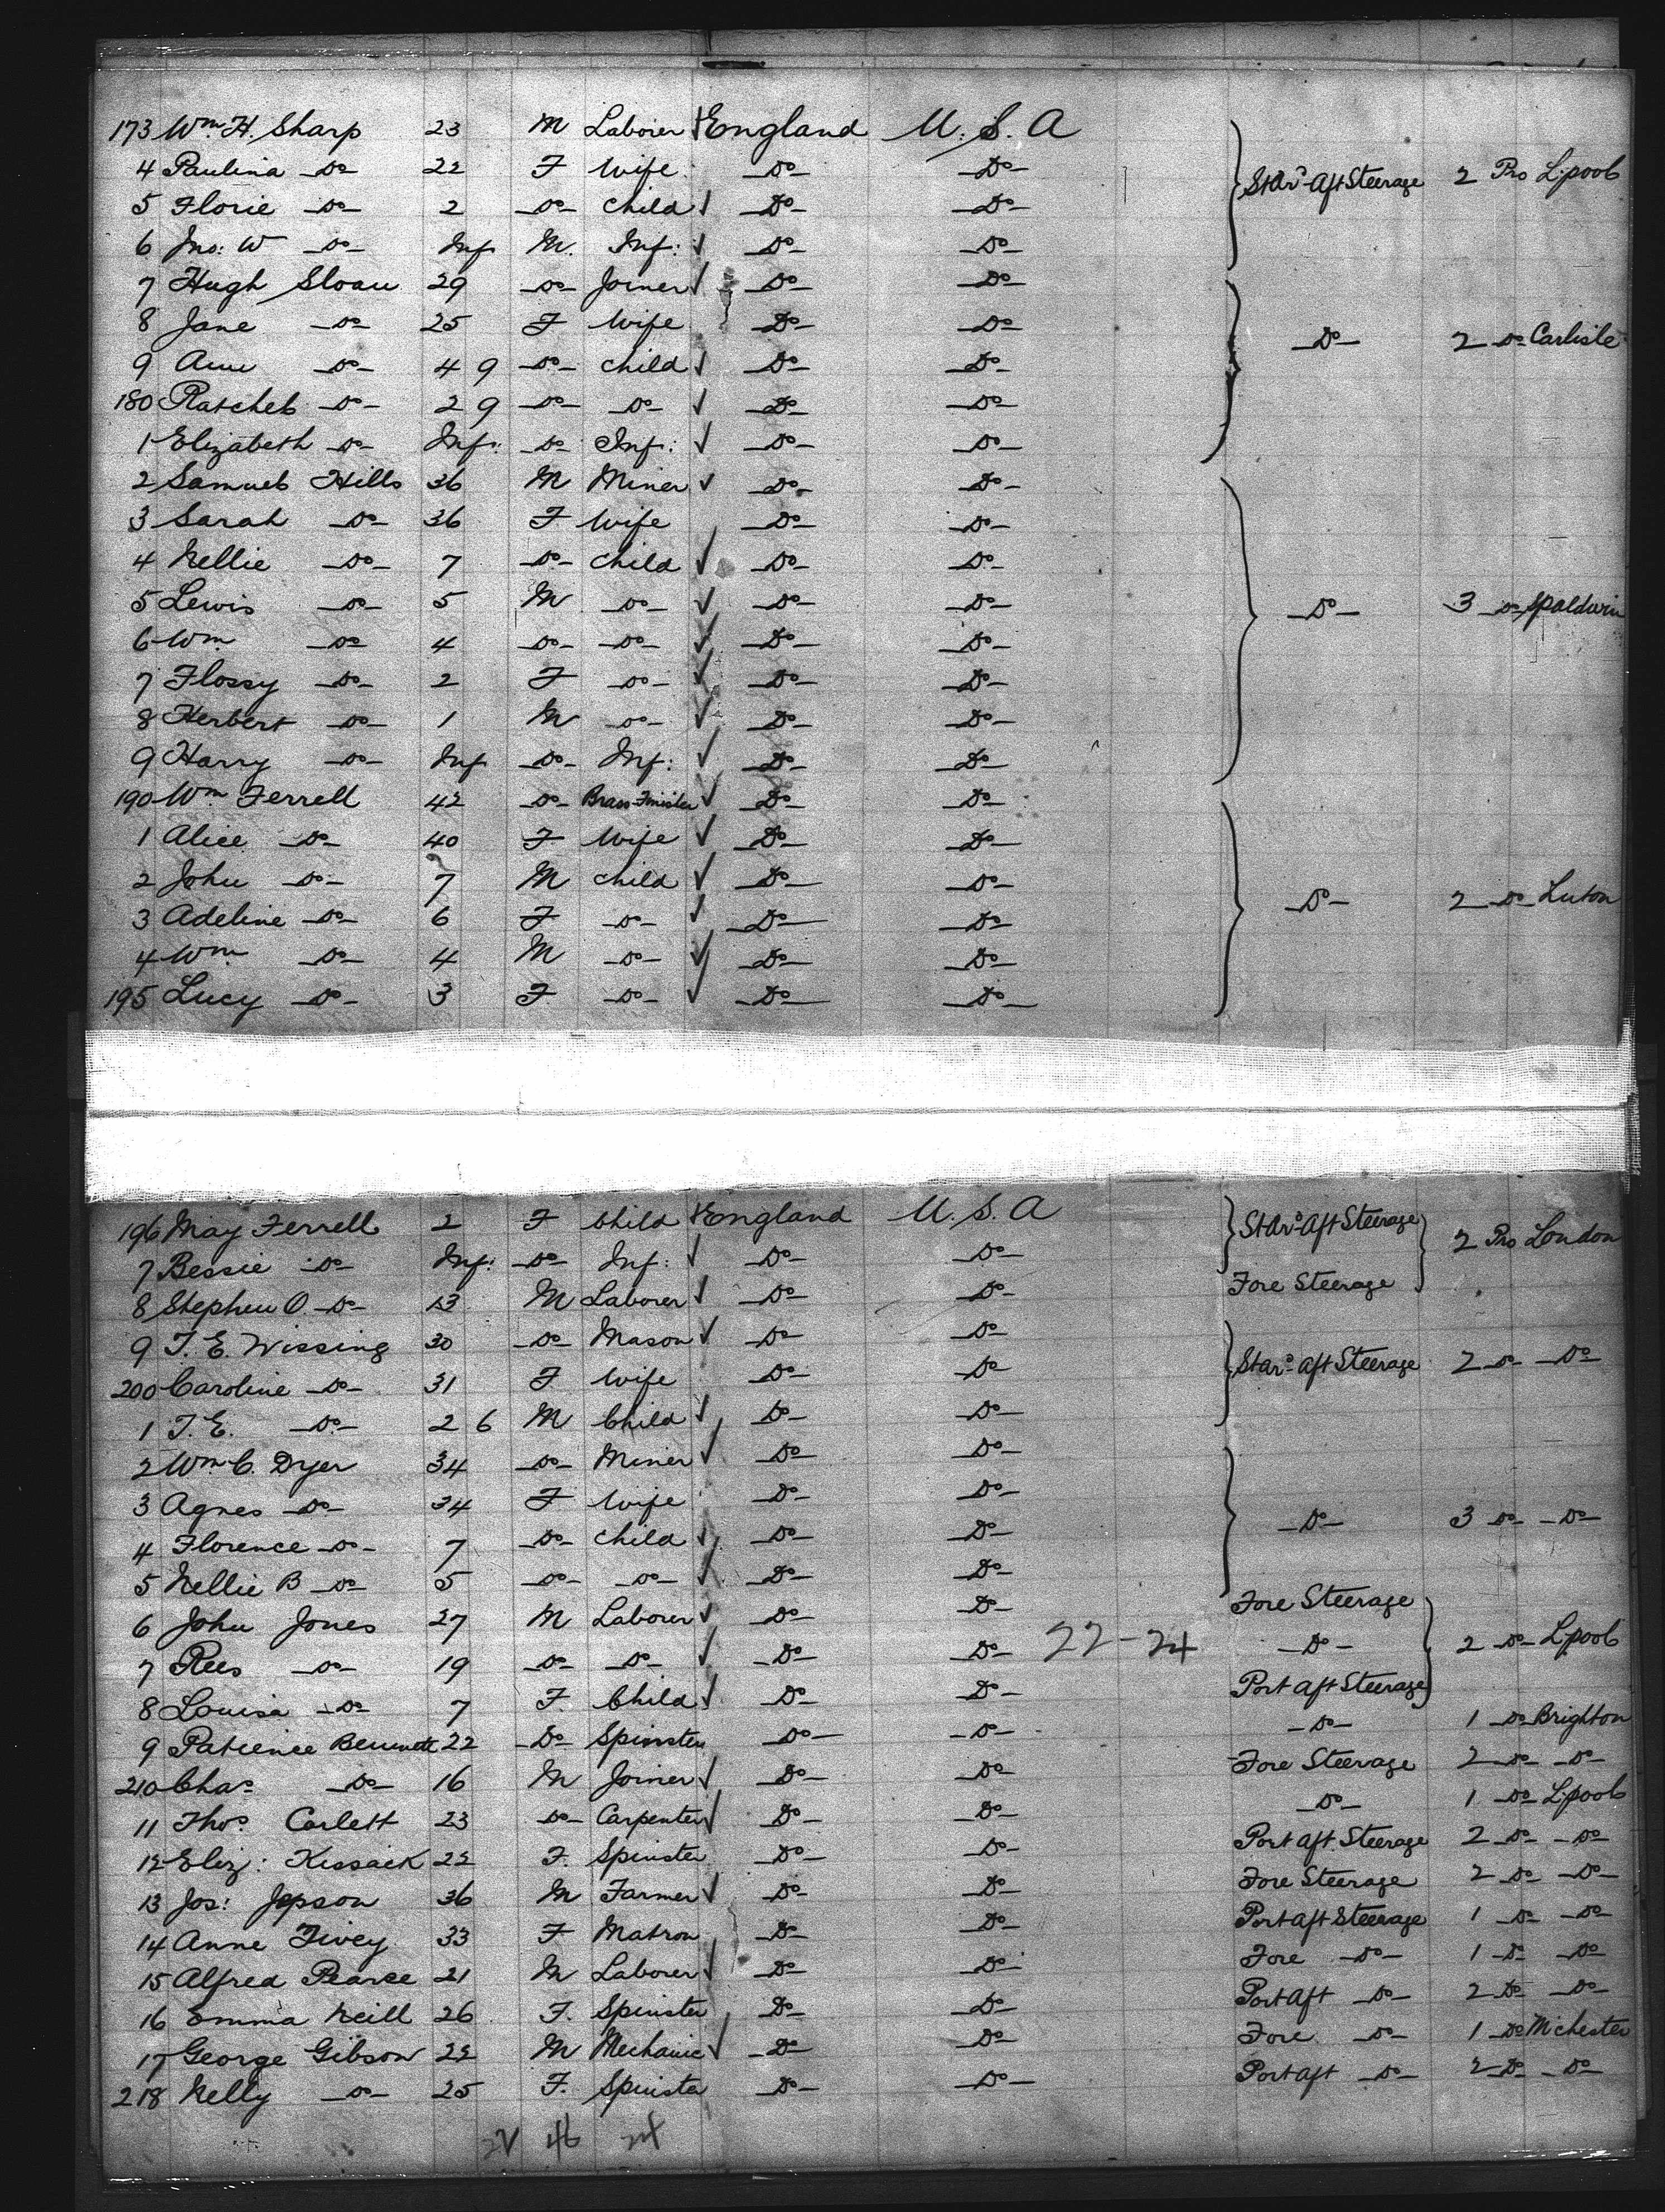 173 Wm H. Sharp 23 M Laborer England U.S.A
4 Paulina Do 22 F Wife Do Do Starb Aft Steerage 2 Pro L.pool
5 Florie Do 2 Do Child Do Do
6 Jno: W Do Inf M. Inf: Do Do
7 Hugh Sloan 29 Do Joiner Do Do
8 Jane Do 25 F Wife Do Do Do 2 Do Carlisle
9 Ann Do 4 9 Do Child Do Do
180 Rachel Do 2 9 Do Do Do Do
1 Elizabeth Do Inf: Do Inf: Do Do
2 Samuel Hills 36 M Miner Do Do
3 Sarah Do 36 F Wife Do Do
4 Nellie Do 7 Do Child Do Do
5 Lewis Do 5 M Do Do Do Do 3 Do
6 Wm Do 4 Do Do Do Do
7 Flossy Do 2 F Do Do Do
8 Herbert Do 1 M Do Do Do
9 Harry Do Inf Do Inf: Do Do
190 Wm Ferrell 42 Do Brass Finisher Do Do
1 Alice Do 40 F Wife Do Do
2 John Do 7 M Child Do Do Do 2 Do Luton
3 Adeline Do 6 F Do Do Do
4 Wm Do 4 M Do Do Do
195 Lucy Do 3 F Do Do Do
196 May Ferrell 2 F Child England U.S.A Starb Aft Steerage 2 Pro London
7 Bessie Do Inf: Do Inf: Do Do
8 Stephen O. Do 13 M Laborer Do Do Fore Steerage
9 T. E. Wissing 30 Do Mason Do Do
200 Caroline Do 31 F Wife Do Do Starb Aft Steerage 2 Do Do
1 T. E. Do 2 6 M Child Do Do
2 Wm C. Dyer 34 Do Miner Do Do
3 Agnes Do 34 F Wife Do Do
4 Florence Do 7 Do Child Do Do Do 3 Do Do
5 Nellie B Do 5 Do Do Do Do
6 John Jones 27 M Laborer Do Do Fore Steerage
7 Rees Do 19 Do Do Do Do 22-24 Do 2 Do Lpool
8 Louisa Do 7 F Child Do Do Port Aft Steerage
9 Patience Bennett 22 Do Spinster Do Do Do 1 Do Brighton
210 Chas Do 16 M Joiner Do Do Fore Steerage 2 Do Do
11 Thos Corlett 23 Do Carpenter Do Do Do 1 Do L.pool
12 Eliz: Kissack 22 F. Spinster Do Do Port Aft Steerage 2 Do Do
13 Jos: Jepson 36 M Farmer Do Do Fore Steerage 2 Do Do
14 Anne Tivey 33 F Matron Do Do Port Aft Steerage 1 Do Do
15 Alfred Pearce 21 M Laborer Do Do Fore Do 1 Do Do
16 Emma Neill 26 F. Spinster Do Do Port Aft Do 2 Do Do
17 George Gibson 22 M Mechanic Do Do Fore Do 1 Do Mchester
218 Nelly Do 25 F. Spinster Do Do Port Aft Do 2 Do Do
22 46 24